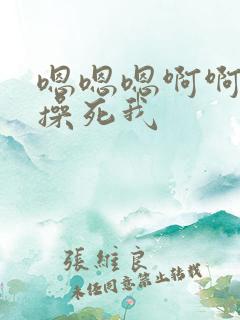 嗯嗯嗯啊啊
操死我
張維良
未经同意禁止转载